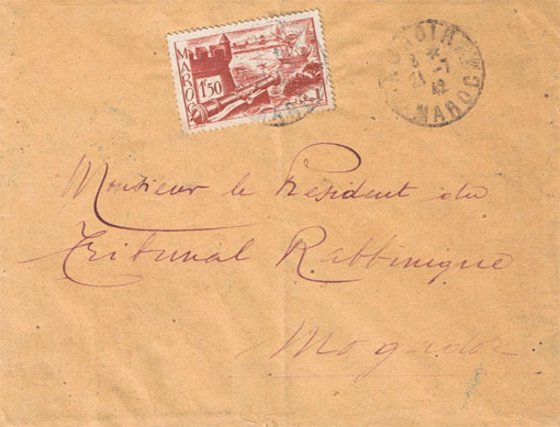 MAROC
1F50
المغرب
21-7
42
MAROC
Monsieur le Président du
Tribunal Rabbinique
Mogador